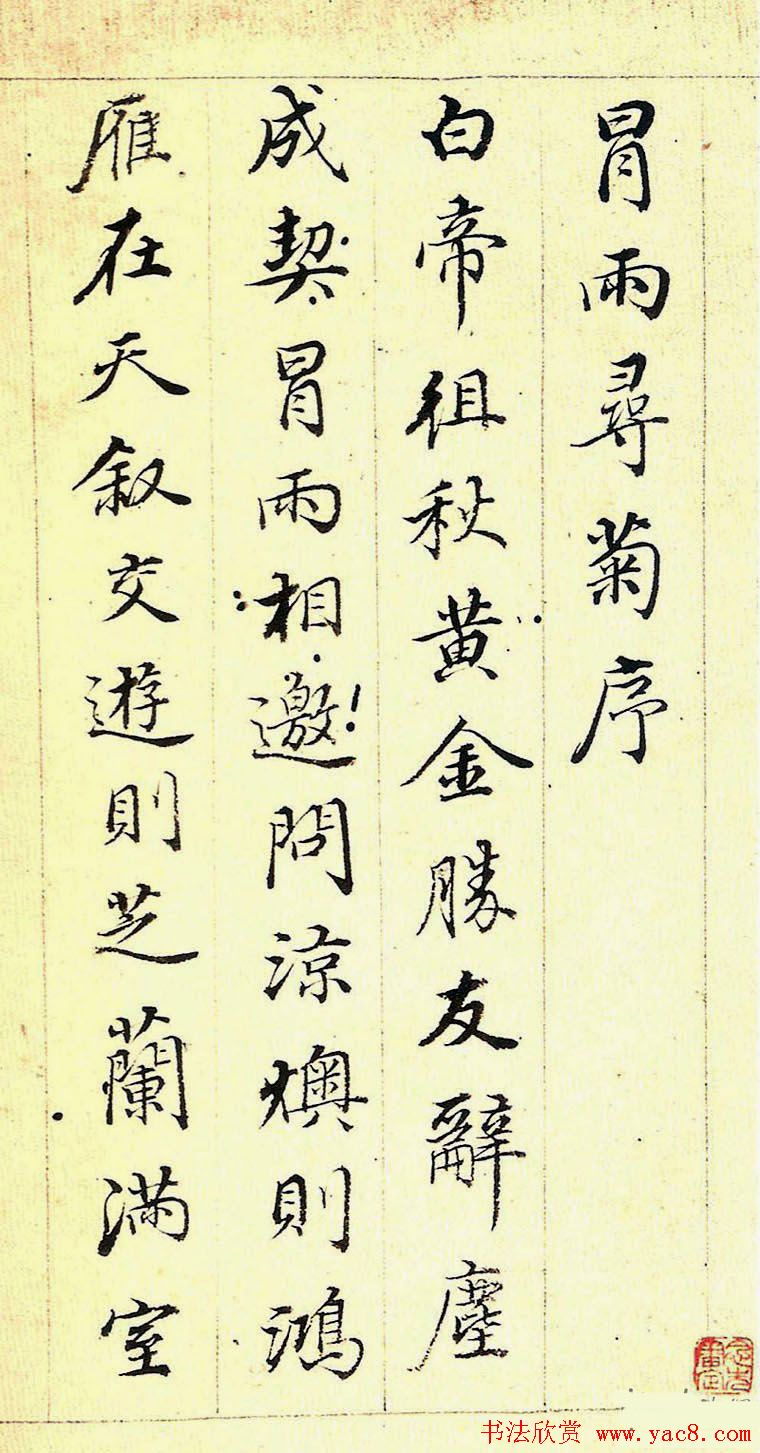 冒雨尋菊序
白帝徂秋黄金勝友辭塵
成契冒雨相邀問涼燠則鴻
雁在天叙交遊則芝蘭滿室
书法欣赏 www.yac8.com